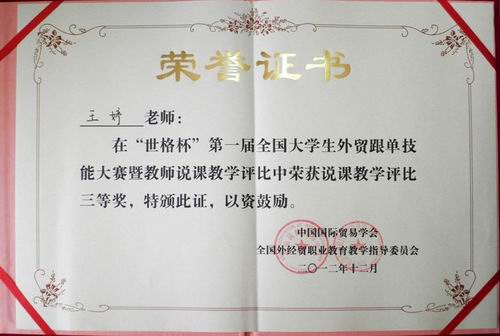 荣誉证书
王婷 老师：
在“世格杯”第一届全国大学生外贸跟单技
能大赛暨教师说课教学评比中荣获说课教学评比
三等奖，特颁此证，以资鼓励。
中国国际贸易学会
全国外经贸职业教育教学指导委员会
二〇一二年十二月